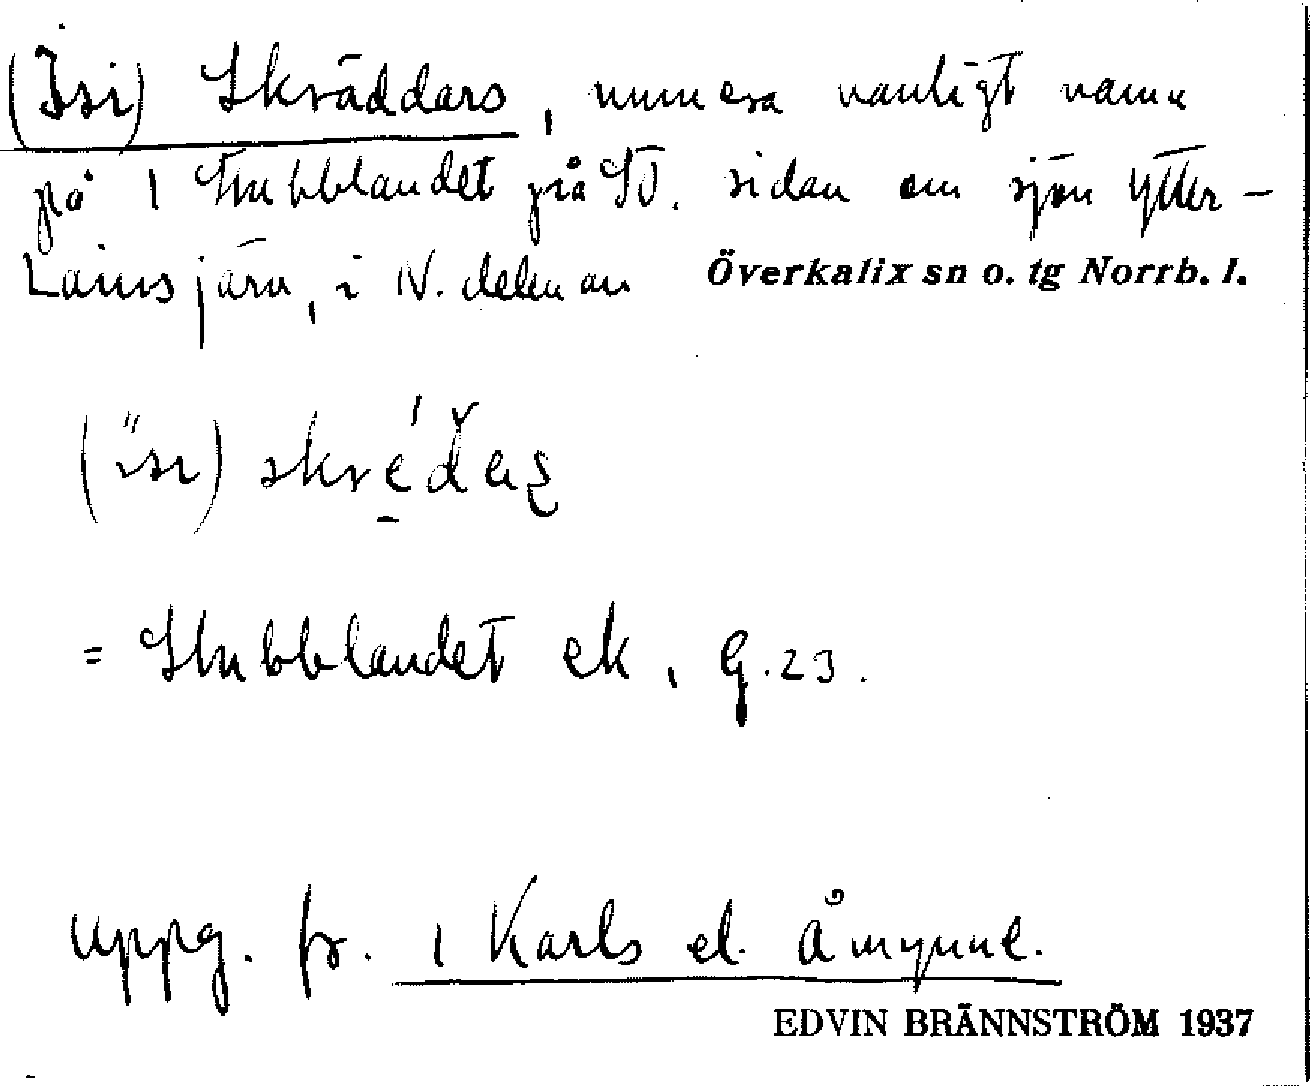 (Isi) Skräddars, numera vanligt namn
på 1 Stubblandet på SO. sidan om sjön Ytter-
Lainsjärv, i N. delen av Överkalix sn o. tg Norrb. l.
(isi)
= Stubblandet ek, g. 23.
uppg. fr. 1 Karls el. Åmynne.
EDVIN BRÄNNSTRÖM 1937